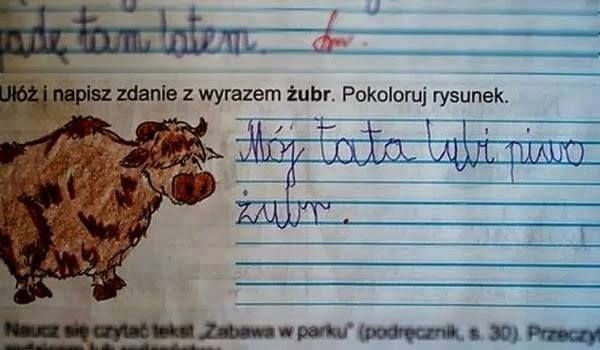 jadę tam latem.
Ułóż i napisz zdanie z wyrazem żubr. Pokoloruj rysunek.
Mój tata lubi piwo
żubr.
Naucz się czytać tekst „Zabawa w parku" (podręcznik, s. 30). Przeczyt